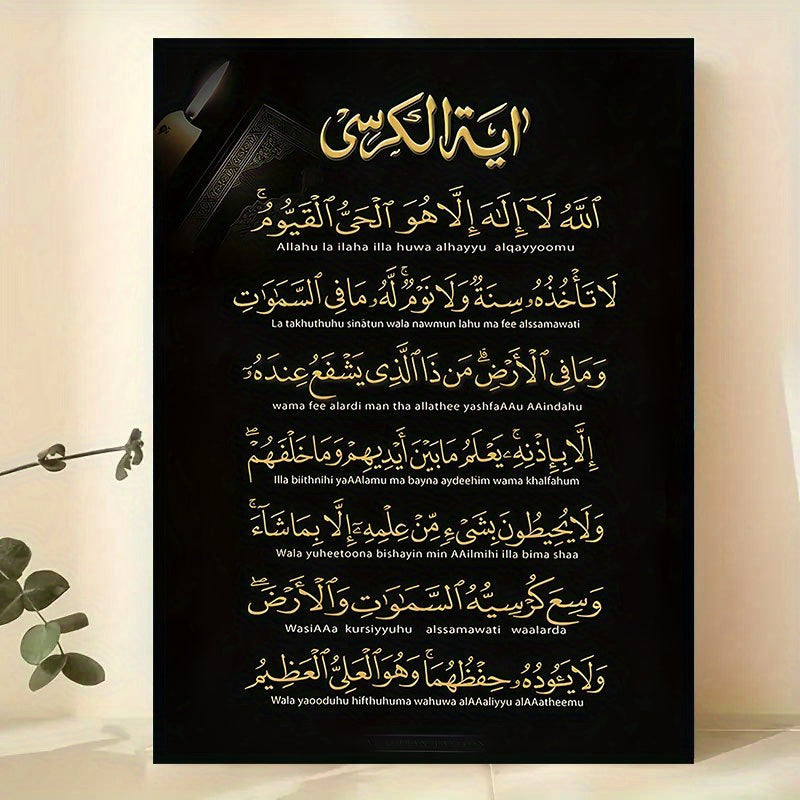 اية الكرسي
ٱللَّهُ لَآ إِلَٰهَ إِلَّا هُوَ ٱلْحَيُّ ٱلْقَيُّومُ ۚ
Allahu la ilaha illa huwa alhayyu alqayyoomu
لَا تَأْخُذُهُۥ سِنَةٌ وَلَا نَوْمٌ ۚ لَّهُۥ مَا فِى ٱلسَّمَٰوَٰتِ
La takhuthuhu sinatun wala nawmun lahu ma fee alssamawati
وَمَا فِى ٱلْأَرْضِ ۗ مَن ذَا ٱلَّذِى يَشْفَعُ عِندَهُۥٓ
wama fee alardi man tha allathee yashfaAAu AAindahu
إِلَّا بِإِذْنِهِۦ ۚ يَعْلَمُ مَا بَيْنَ أَيْدِيهِمْ وَمَا خَلْفَهُمْ ۖ
Illa biithnihi yaAAlamu ma bayna aydeehim wama khalfahum
وَلَا يُحِيطُونَ بِشَىْءٍ مِّنْ عِلْمِهِۦٓ إِلَّا بِمَا شَآءَ ۚ
Wala yuheetoona bishayin min AAilmihi illa bima shaa
وَسِعَ كُرْسِيُّهُ ٱلسَّمَٰوَٰتِ وَٱلْأَرْضَ ۖ
WasiAAa kursiyyuhu alssamawati waalarda
وَلَا يَـُٔودُهُۥ حِفْظُهُمَا ۚ وَهُوَ ٱلْعَلِىُّ ٱلْعَظِيمُ
Wala yaooduhu hifthuhuma wahuwa alAAaliyyu alAAatheemu